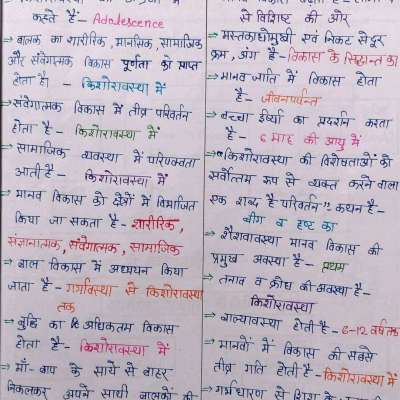 कहते है - Adolescence
⇒ बालक का शारीरिक, मानसिक, सामाजिक
और संवेगात्मक विकास पूर्णता को प्राप्त
होता है। - किशोरावस्था में
⇒ संवेगात्मक विकास में तीव्र परिवर्तन
होता है - किशोरावस्था में
⇒ सामाजिक व्यवस्था में परिपक्वता
आती है - किशोरावस्था में
⇒ मानव विकास को क्षेत्रों में विभाजित
किया जा सकता है - शारीरिक,
संज्ञानात्मक, संवेगात्मक, सामाजिक
⇒ बाल विकास में अध्ययन किया
जाता है - गर्भावस्था से किशोरावस्था
तक
⇒ बुद्धि का अधिकतम विकास
होता है - किशोरावस्था में
⇒ माँ - बाप के साये से बाहर
निकलकर अपने साथी बालकों की
से विशिष्ट की ओर
⇒ मस्तकाधोमुखी एवं निकट से दूर
क्रम, अंग है - विकास के सिद्धान्त का
⇒ मानव जाति में विकास होता
है - जीवनपर्यन्त
⇒ बच्चा ईर्ष्या का प्रदर्शन करता
है - 6 माह की आयु में
⇒ "किशोरावस्था की विशेषताओं को
सर्वोत्तम रूप से व्यक्त करने वाला
एक शब्द है परिवर्तन" कथन है -
बीग व हण्ट का
⇒ शैशवावस्था मानव विकास की
प्रमुख अवस्था है - प्रथम
⇒ तनाव व क्रोध की अवस्था है -
किशोरावस्था
⇒ बाल्यावस्था होती है - 6-12 वर्ष तक
⇒ मानवों में विकास की सबसे
तीव्र गति होती है - किशोरावस्था में
⇒ गर्भधारण से शिशु के